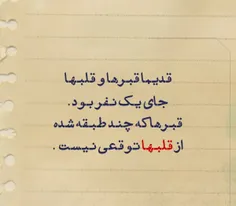 قدیما قبرها و قلبها
جای یک نفر بود.
قبرها که چند طبقه شده
از قلبها توقعی نیست .